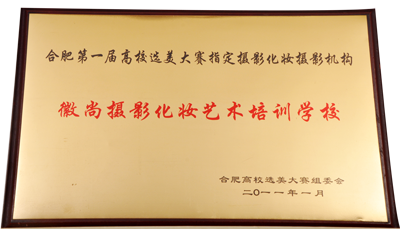 合肥第一届高校选美大赛指定摄影化妆摄影机构
徽尚摄影化妆艺术培训学校
合肥高校选美大赛组委会
二〇一一年一月